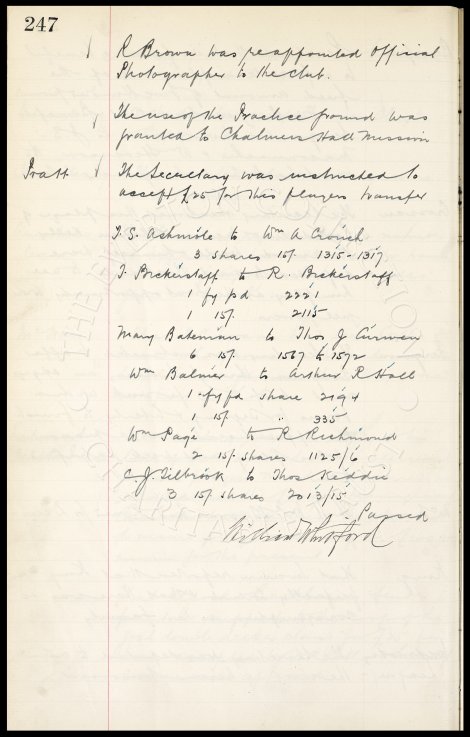 247
R Brown was reappointed Official
Photographer to the club.
The use of the Practice ground was
granted to Chalmers Hall Mission
Pratt The Secretary was instructed to
accept £25 for this players transfer
T. S. Ashmole to Wm A Crouch
3 shares 15/- 1315-1317
T. Bickerstaff to R. Bickerstaff
1 fy pd 2221
1 15/- 2115
Mary Bateman to Thos J Curwen
6 15/- 1567 to 1572
Wm Balmer to Arthur R Hall
1 fy pd share 2194
1 15/- " 335
Wm Page to R Richmond
2 15/- shares 1125/6
C. J. Tilbrook to Thos Keddie
3 15/- shares 2013/15
Passed
William Whitford